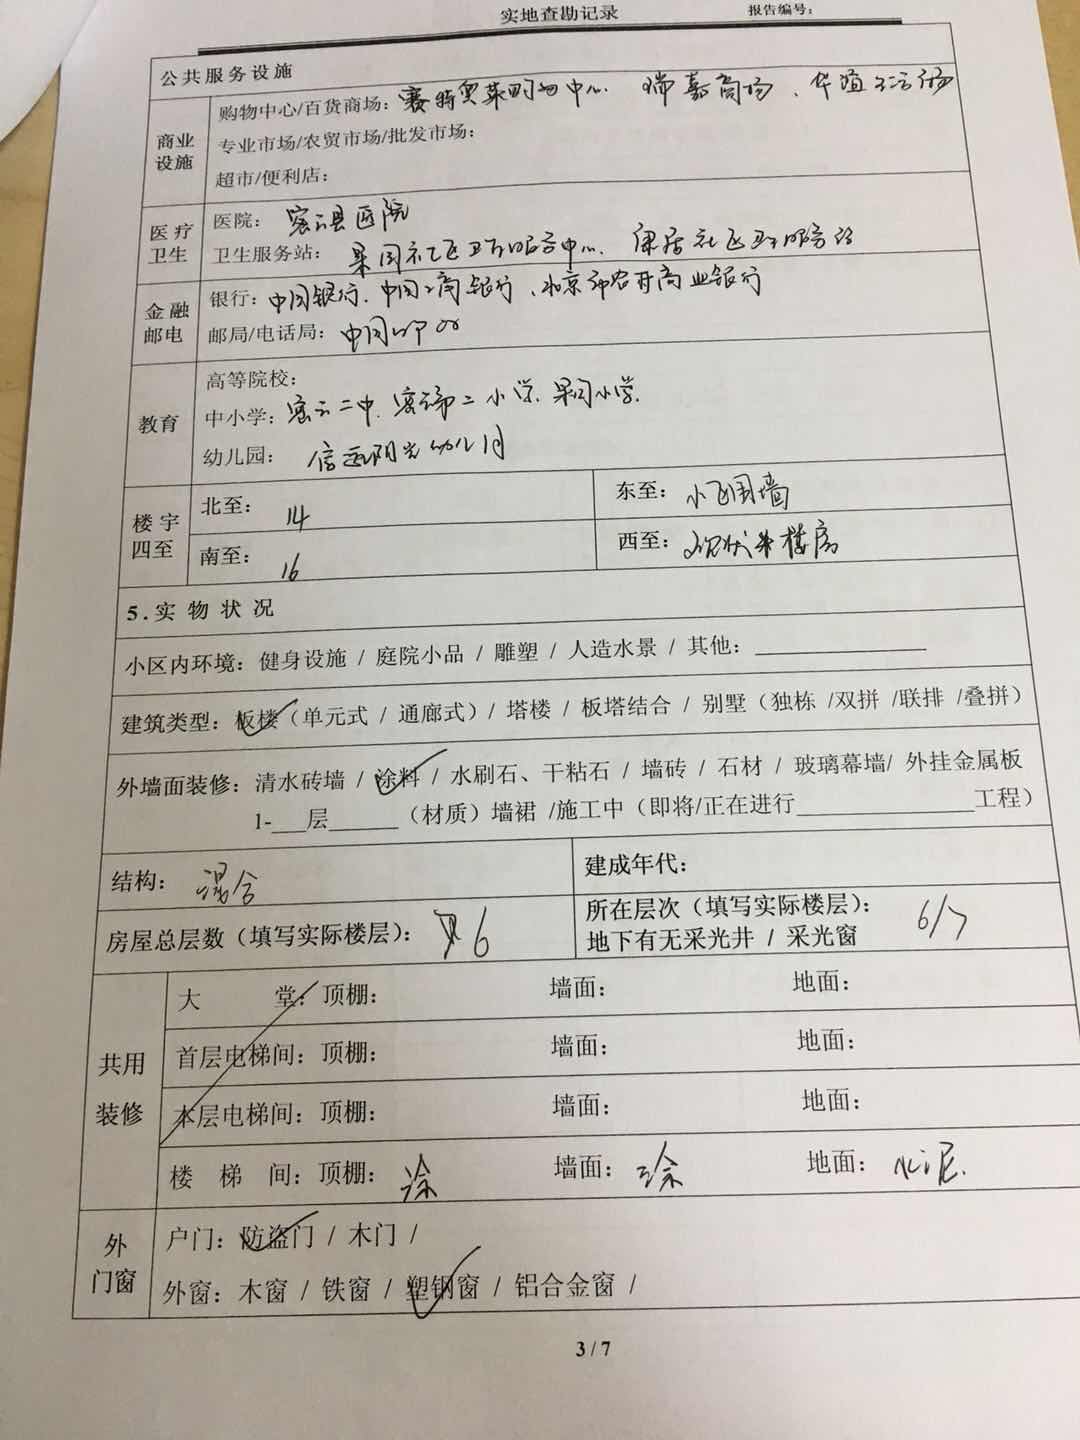 实地查勘记录 报告编号：
公共服务设施
商业设施
购物中心/百货商场：赛特奥莱购物中心、瑞嘉商场、华
专业市场/农贸市场/批发市场：
超市/便利店：
医疗卫生
医院：密云县医院
卫生服务站：果园社区卫生服务中心、康居社区卫生服务站
金融邮电
银行：中国银行、中国工商银行、北京农村商业银行
邮局/电话局：中国邮政
教育
高等院校：
中小学：密云二中、密云第二小学、果园小学
幼儿园：阳光幼儿园
楼宇四至
北至：14 东至：小区围墙
南至：16 西至：现状楼房
5.实物状况
小区内环境：健身设施 / 庭院小品 / 雕塑 / 人造水景 / 其他：
建筑类型：板楼（单元式 / 通廊式）/ 塔楼 / 板塔结合 / 别墅（独栋 /双拼 /联排 /叠拼）
外墙面装修：清水砖墙 / 涂料 / 水刷石、干粘石 / 墙砖 / 石材 / 玻璃幕墙/ 外挂金属板
1-___层______（材质）墙裙 /施工中（即将/正在进行______________工程）
结构：混合 建成年代：
房屋总层数（填写实际楼层）：6 所在层次（填写实际楼层）：6/7
地下有无采光井 / 采光窗
共用装修
大 堂：顶棚： 墙面： 地面：
首层电梯间：顶棚： 墙面： 地面：
本层电梯间：顶棚： 墙面： 地面：
楼 梯 间：顶棚：涂 墙面：涂 地面：水泥
外门窗
户门：防盗门 / 木门 /
外窗：木窗 / 铁窗 / 塑钢窗 / 铝合金窗 /
3 / 7